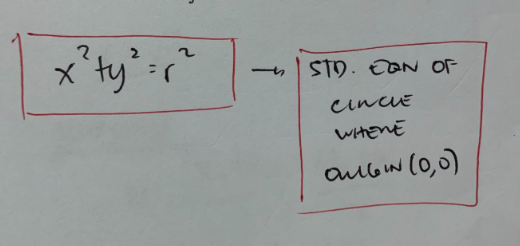 x²+y²=r² → STD. EQN OF
CIRCLE
WHERE
ORIGIN (0,0)